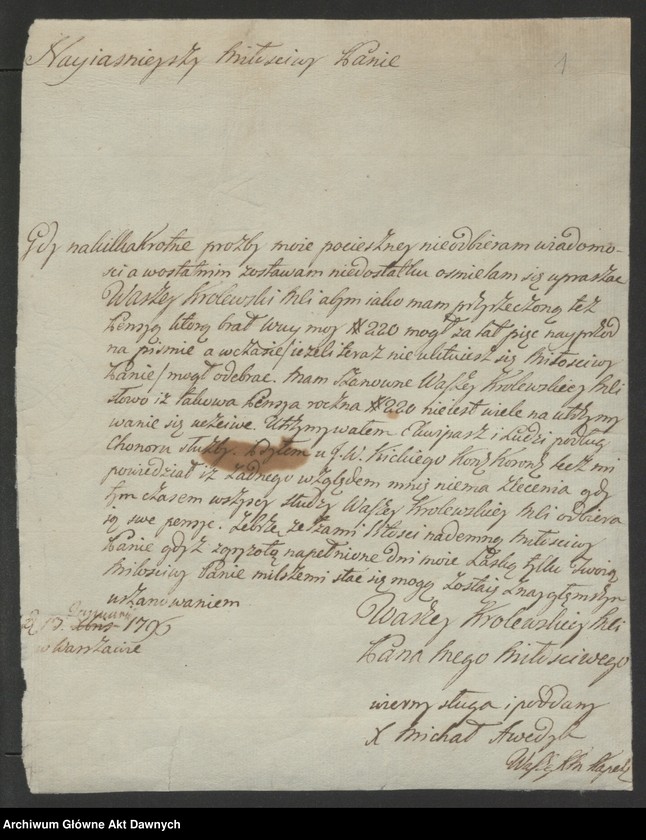 Nayiasnieyszy Miłosciwy Panie
1
Gdy nakilkakrotne prozby moie pocieszney nieodbieram wiadomo-
sci a wostatnim zostawam niedostatku osmielam się upraszac
Waszey Krolewski Mci abym iako mam przyrzeczoną też
Pensyą którą brat Wuy moy # 220 mogł za lat pięc nayprzod
na pismie a wczasie/ieżeli teraz nie ulituiesz się Miłosciwy
Panie/mogł odebrac. Mam Szanowne Waszey Krolewskiey Mci
słowo iż takowa Pensya roczna # 220 nie iest wiele na utrzymy
wanie się uczciwe. Utrzymywałem Ekwipasz i Ludzi podług
Chonoru służby. Byłem u J. W. Kickiego Koń: Koron: lecz mi
powiedział iż żadnego względem mnie niema zlecenia gdy
tym czasem wszyscy słudzy Waszey Krolewskiey Mci odbiera
ią swe pensye. Żebrzę ze łzami litosci nademną Miłosciwy
Panie gdyż zgryzotą napełnione dni moie Łaską tylko Twoią
Miłosciwy Panie milszemi stac się mogą zostaię znaygłębszym
uszanowaniem
D 17. 1796
w Warszawie
Waszey Krolewskiey Mci
Pana mego Miłosciwego
wierny sługa i poddany
X Michał Awedyk
Archiwum Główne Akt Dawnych